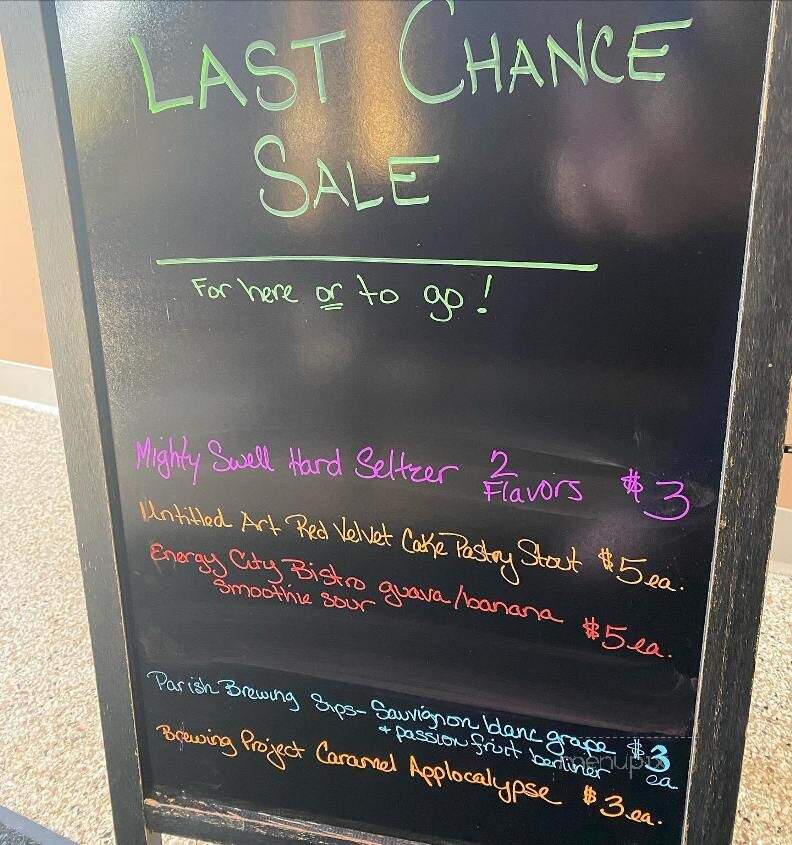 LAST CHANCE
SALE
For here or to go!
Mighty Swell Hard Seltzer 2 Flavors $3
Untitled Art Red Velvet Cake Pastry Stout $5 ea.
Energy City Bistro guava/banana $5 ea.
Smoothie sour
Parish Brewing Sips- Sauvignon blanc grape $3
+ passion fruit berliner ea
Brewing Project Caramel Applocalypse $3 ea.
menupix